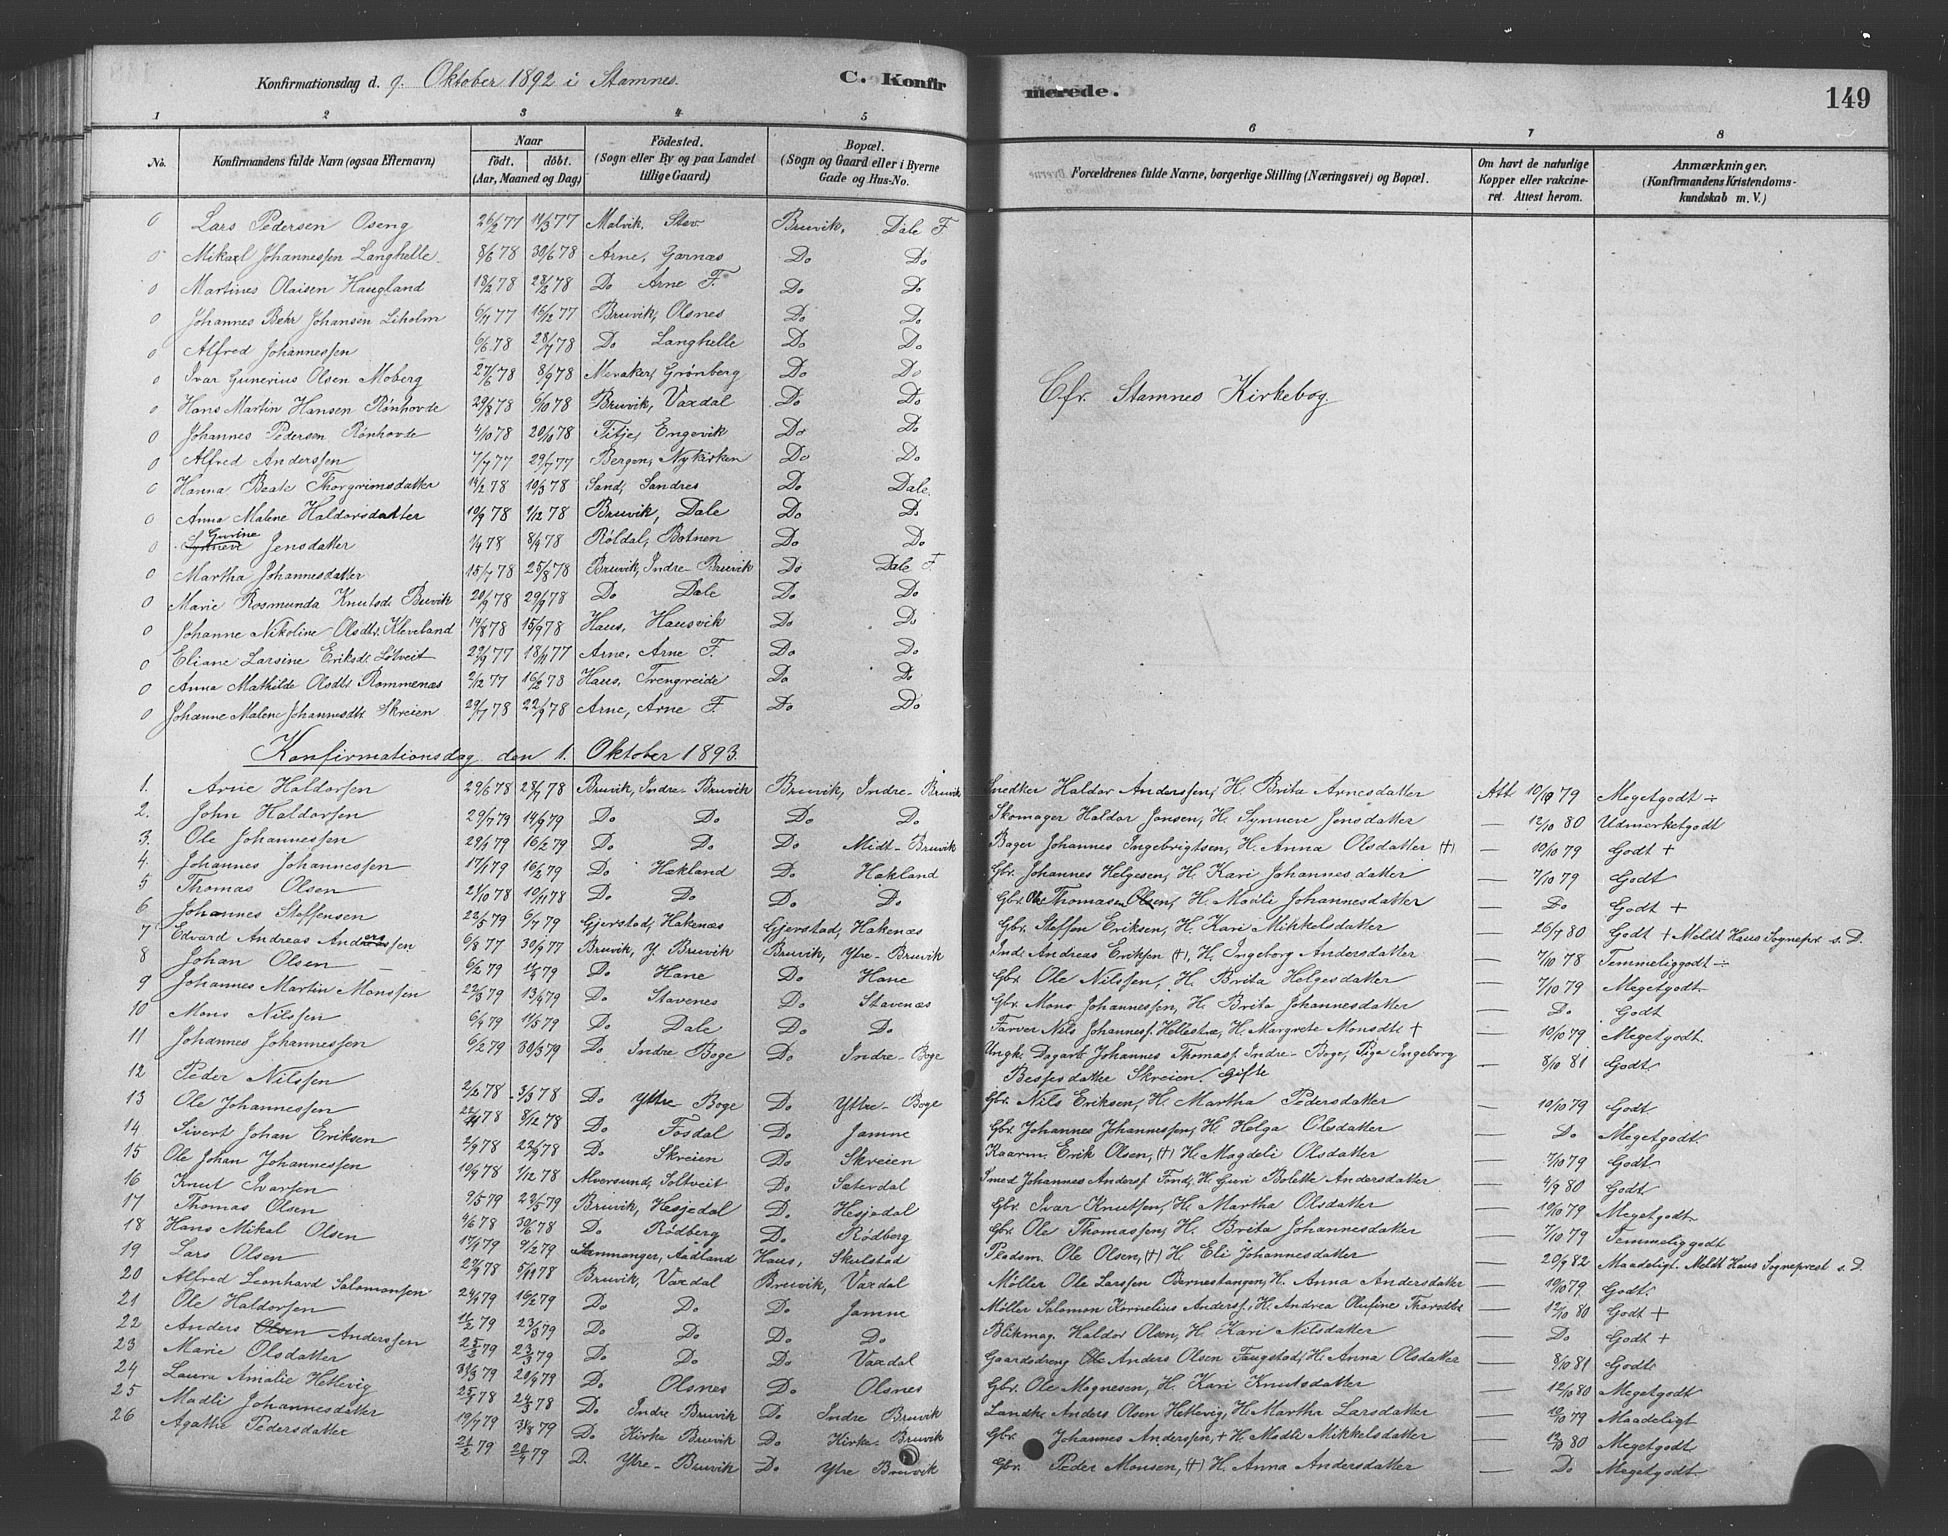 Konfirmationsdag d. 9. Oktober 1892 i Stamnes.
C. Konfirmerede.
149
1 2 3 4 5 6 7 8
No. Konfirmandens fulde Navn (ogsaa Efternavn) Naar födt. döbt. (Aar, Maaned og Dag) Födested. (Sogn eller By og paa Landet tillige Gaard) Bopæl. (Sogn og Gaard eller i Byerne Gade og Hus-No. Forældrenes fulde Navne, borgerlige Stilling (Næringsvei) og Bopæl. Om havt de naturlige Kopper eller vakcineret. Attest herom. Anmærkninger. (Konfirmandens Kristendomskundskab m. V.)
0 Lars Pedersen Oseng 26/2 77 Malvik, Bruvik, Dale F
0 Mikael Johannessen Langhelle 8/6 78 30/6 78 Arne, Garnæs Do Do
0 Martines Olaisen Haugland Do Arne F. Do Do
0 Johannes Behr Johansen Liholm Bruvik, Olsnes Do Do
0 Alfred Johannessen 6/6 78 Do Langhelle Do Do
0 Ivar Gunerius Olsen Moberg 27/6 78 8/9 78 Meraker, Grönberg Do Do
0 Hans Martin Hansen Rönhovde 29/8 78 6/10 78 Bruvik, Vaxdal Do Do
0 Johannes Pedersen Rönhovde 4/10 78 20/10 78 Fitje, Engevik Do Do
0 Alfred Anderssen 7/7 77 29/7 77 Bergen, Nykirken Do Do
0 Hanna Beate Thorgrimsdatter 14/2 78 10/3 78 Sand, Sandres Do Dale
0 Anna Malene Haldorsdatter 10/9 78 1/12 78 Bruvik, Dale Do Do
0 Synneve Gurine Jensdatter Röldal, Botnen Do Do
0 Martha Johannesdatter 15/7 78 25/8 78 Bruvik, Indre-Bruvik Do Dale F
0 Marie Rosmunda Knutsd. Bruvik 20/9 78 29/9 78 Do Dale Do Do
0 Johanne Nikoline Olsdtr. Kleveland 14/8 78 15/9 78 Haus, Hausvik Do Do
0 Eliane Larsine Eriksdt. Lötveit 22/9 77 18/11 77 Arne, Arne F. Do Do
0 Anna Mathilde Olsdtr Rommenæs 2/12 77 16/2 78 Haus, Trengreide Do Do
0 Johanne Malene Johannesdt. Skreien 29/7 78 22/9 78 Arne, Arne F. Do Do
Cfr. Stamnes Kirkebog.
Konfirmationsdag den 1. Oktober 1893.
1. Arne Haldorsen 29/6 78 28/7 78 Bruvik, Indre-Bruvik Bruvik, Indre-Bruvik Snedker Haldor Anderssen, H. Brita Arnesdatter Att 10/10 79 Megetgodt ÷
2. John Haldorsen 29/7 79 14/9 79 Do Do Do Do Skomager Haldor Jonsen, H. Synneve Jonsdatter — 12/10 80 Udmerketgodt
3. Ole Johannessen 29/1 79 16/2 79 Do Do Do Midt-Bruvik Bager Johannes Ingebrigtsen, H. Anna Olsdatter (+) — 10/10 79 Godt +
4. Johannes Johannessen 17/1 79 16/2 79 Do Hækland Do Hækland Gbr. Johannes Helgesen, H. Kari Johannesdatter — 7/10 79 Godt
5 Thomas Olsen 21/10 78 10/11 78 Do Do Do Do Gbr. Ole Thomasen Olsen, H. Madli Johannesdatter — Do Godt +
6 Johannes Steffensen 22/5 79 6/7 79 Gjerstad, Hakenæs Gjerstad, Hakenæs Gbr. Steffen Eriksen, H. Kari Mikkelsdatter — 26/7 80 Godt + Meldt Haus Sognepr. s. D.
7 Edvard Andreas Andreassen 6/8 77 30/9 77 Bruvik, Y. Bruvik Bruvik, Ytre-Bruvik Ind. Andreas Eriksen (+), H. Ingeborg Andersdatter — 7/10 78 Temmeliggodt ÷
8 Johan Olsen 6/2 79 Do Hane Do Hane Gbr. Ole Nilssen, H. Brita Helgesdatter — 7/10 79 Megetgodt
9 Johannes Martin Monssen 22/3 79 13/4 79 Do Stavenes Do Stavenæs Gbr. Mons Johannessen, H. Brita Johannesdatter — Do Godt
10 Mons Nilssen 6/4 79 11/5 79 Do Dale Do Do Farver Nils Johanness. Hellestræ, H. Margrete Monsdtr + — 10/10 79 Megetgodt
11 Johannes Johannessen 6/2 79 30/3 79 Do Indre Boge Do Indre-Boge Ungk. Dagarb. Johannes Thomass. Indre-Boge, Pige Ingeborg — 8/10 81 Godt
Bessesdatter Skreien. Gifte
12 Peder Nilssen 2/2 78 3/3 78 Do Yttre Boge Do Yttre-Boge Gbr. Nils Eriksen, H. Martha Pedersdatter — 10/10 79 Godt
13 Ole Johannessen 22/11 78 8/12 78 Do Fosdal Do Jamne Gbr. Johannes Johannessen, H. Helga Olsdatter — Do Megetgodt
14 Sivert Johan Eriksen 2/9 78 22/9 78 Do Skreien Do Skreien Kaarm. Erik Olsen, (+) H. Magdeli Olsdatter — 7/10 79 Godt
15 Ole Johan Johannessen 1/12 78 Alversund, Soltveit Do Sæterdal Smed Johannes Anderss. Tond, H. Guri Bolette Andersdatter — 4/9 80 Godt
16 Knut Ivarsen 9/5 79 22/5 79 Bruvik, Hesjedal Do Hesjedal Gbr. Ivar Knutsen, H. Martha Olsdatter — 10/10 79 Megetgodt
17 Thomas Olsen 4/6 78 30/6 78 Do Rödberg Do Rödberg Gbr. Ole Thomassen, H. Brita Johannesdatter — 7/10 79 Temmeliggodt
18 Hans Mikal Olsen 17/1 79 9/2 79 Samnanger, Aadland Haus, Skulstad Pladsm. Ole Olsen, (+) H. Eli Johannesdatter — 20/9 82 Maadeligt. Meldt Haus Sogneprest s. D.
19 Lars Olsen 27/9 78 5/11 78 Bruvik, Vaxdal Bruvik, Vaxdal Møller Ole Larssen Bernestangen, H. Anna Andersdatter — 10/10 79 Godt
20 Alfred Leonhard Salomonsen 24/1 79 16/2 79 Do Do Do Jamne Møller Salomon Kornelius Anderss., H. Andrea Olufine Thorsdtr — 12/10 80 Godt +
21 Ole Haldorsen 11/2 79 23/3 79 Do Do Do Do Blikmag. Haldor Olsen, H. Kari Nilsdatter — Do Godt +
22 Anders Olsen Anderssen 25/2 79 23/3 79 Do Do Do Vaxdal Gaardsdreng Ole Anders Olsen Faugstad, H. Anna Olsdatter — 8/10 81 Godt
23 Marie Olsdatter 31/3 79 20/4 79 Do Olsnes Do Olsnes Gbr. Ole Magnesen, H. Kari Knutsdatter — 12/10 80 Megetgodt
24 Laura Amalie Hetlevig Do Indre Bruvik Do Indre Bruvik Landh. Anders Olsen Hetlevig, H. Martha Larsdatter — 10/10 79 Maadeligt
25 Madli Johannesdatter 19/7 79 31/8 79 Do Kirke Bruvik Do Kirke-Bruvik Gbr. Johannes Anderssen, + H. Madli Mikkelsdatter — 12/10 80 Megetgodt
26 Agathe Pedersdatter Do Ytre-Bruvik Do Ytre Bruvik Gbr. Peder Monsen, (+) H. Anna Andersdatter — Do Megetgodt